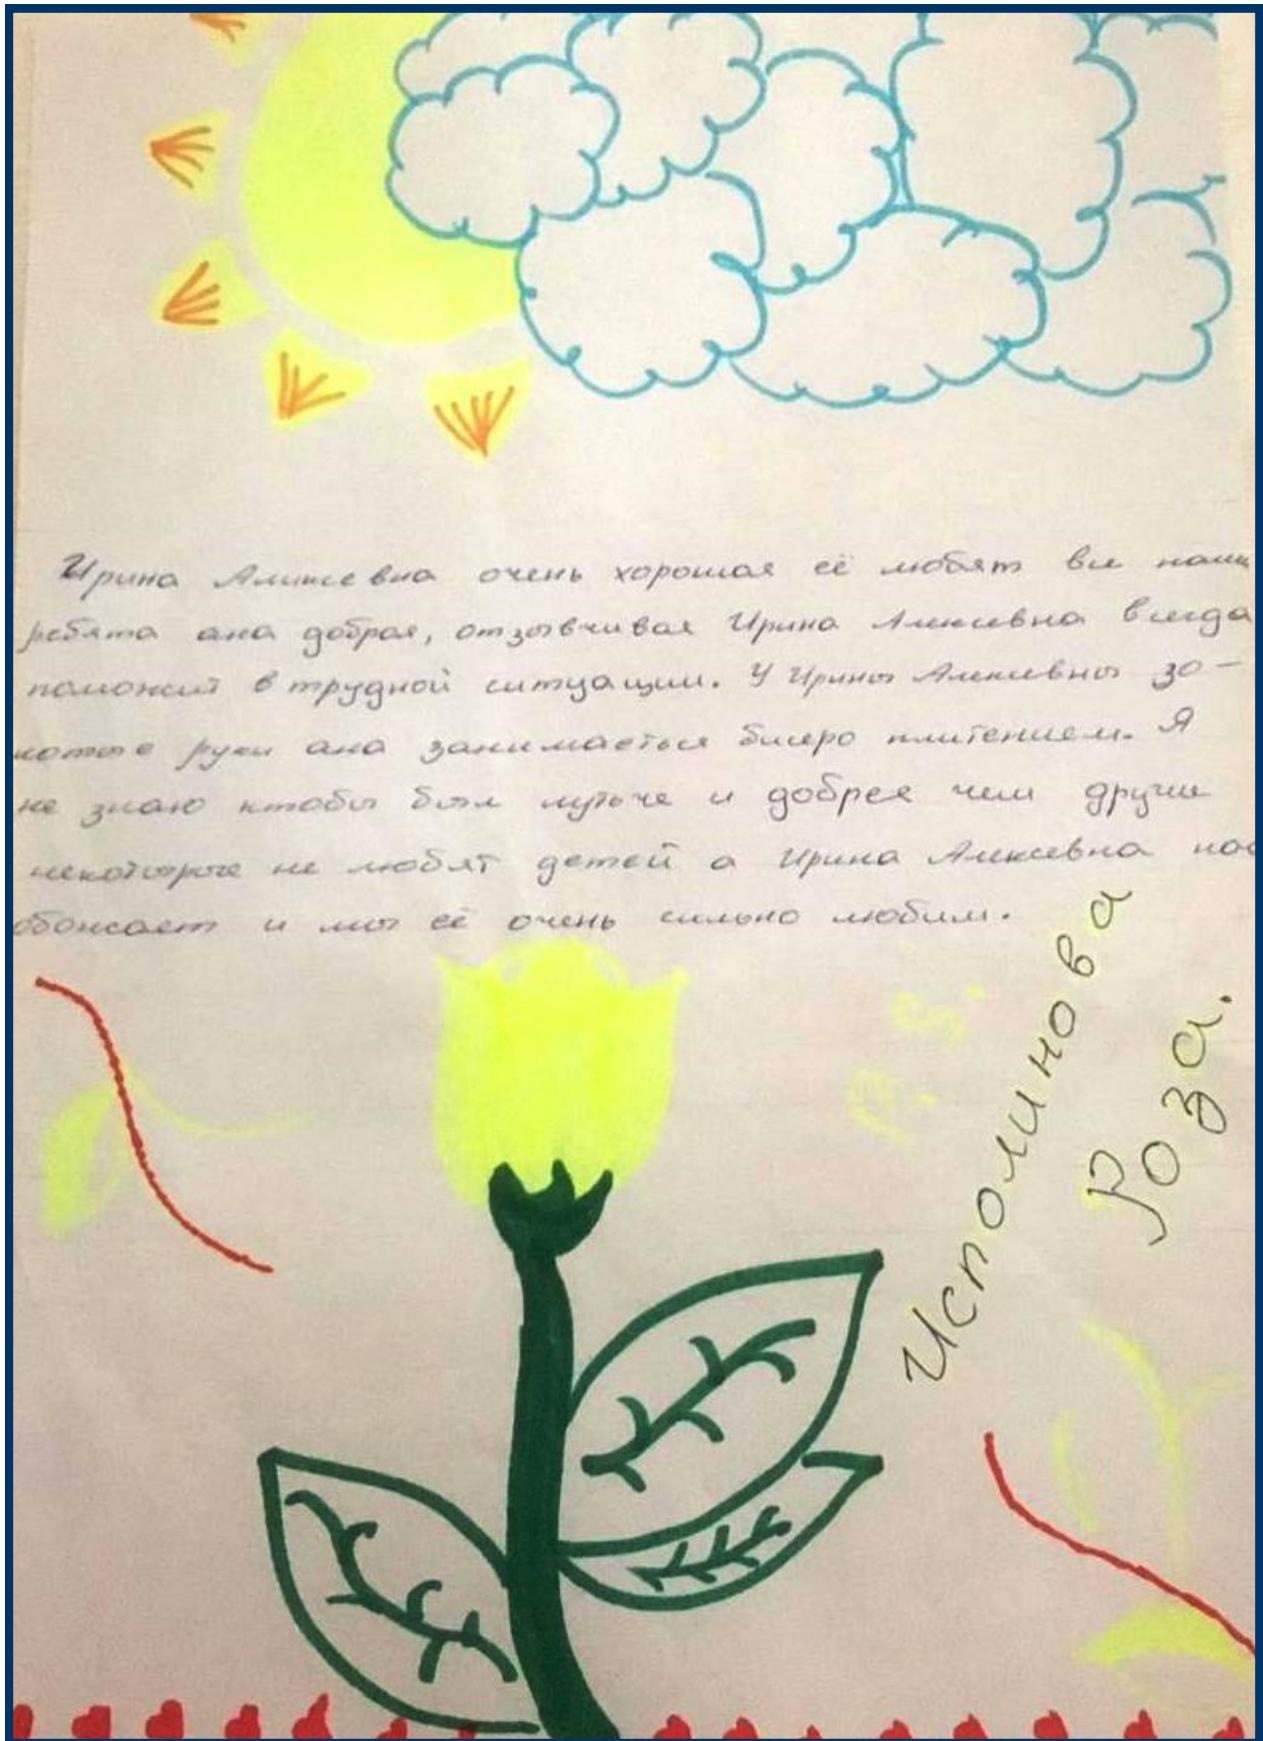 Ирина Аликсевна очень хорошая её любят все наши
ребята ана добрая, отзывчивая Ирина Алексевна всегда
поможит в трудной ситуации. У Ирины Алексевны зо-
лотые руки ана занимаеться бисеро плитением. Я
не знаю ктобы был лутьче и добрее чем другие
некоторые не любят детей а Ирина Алексевна нас
обожает и мы её очень сильно любим.
P.S.
Исполинова
Роза.